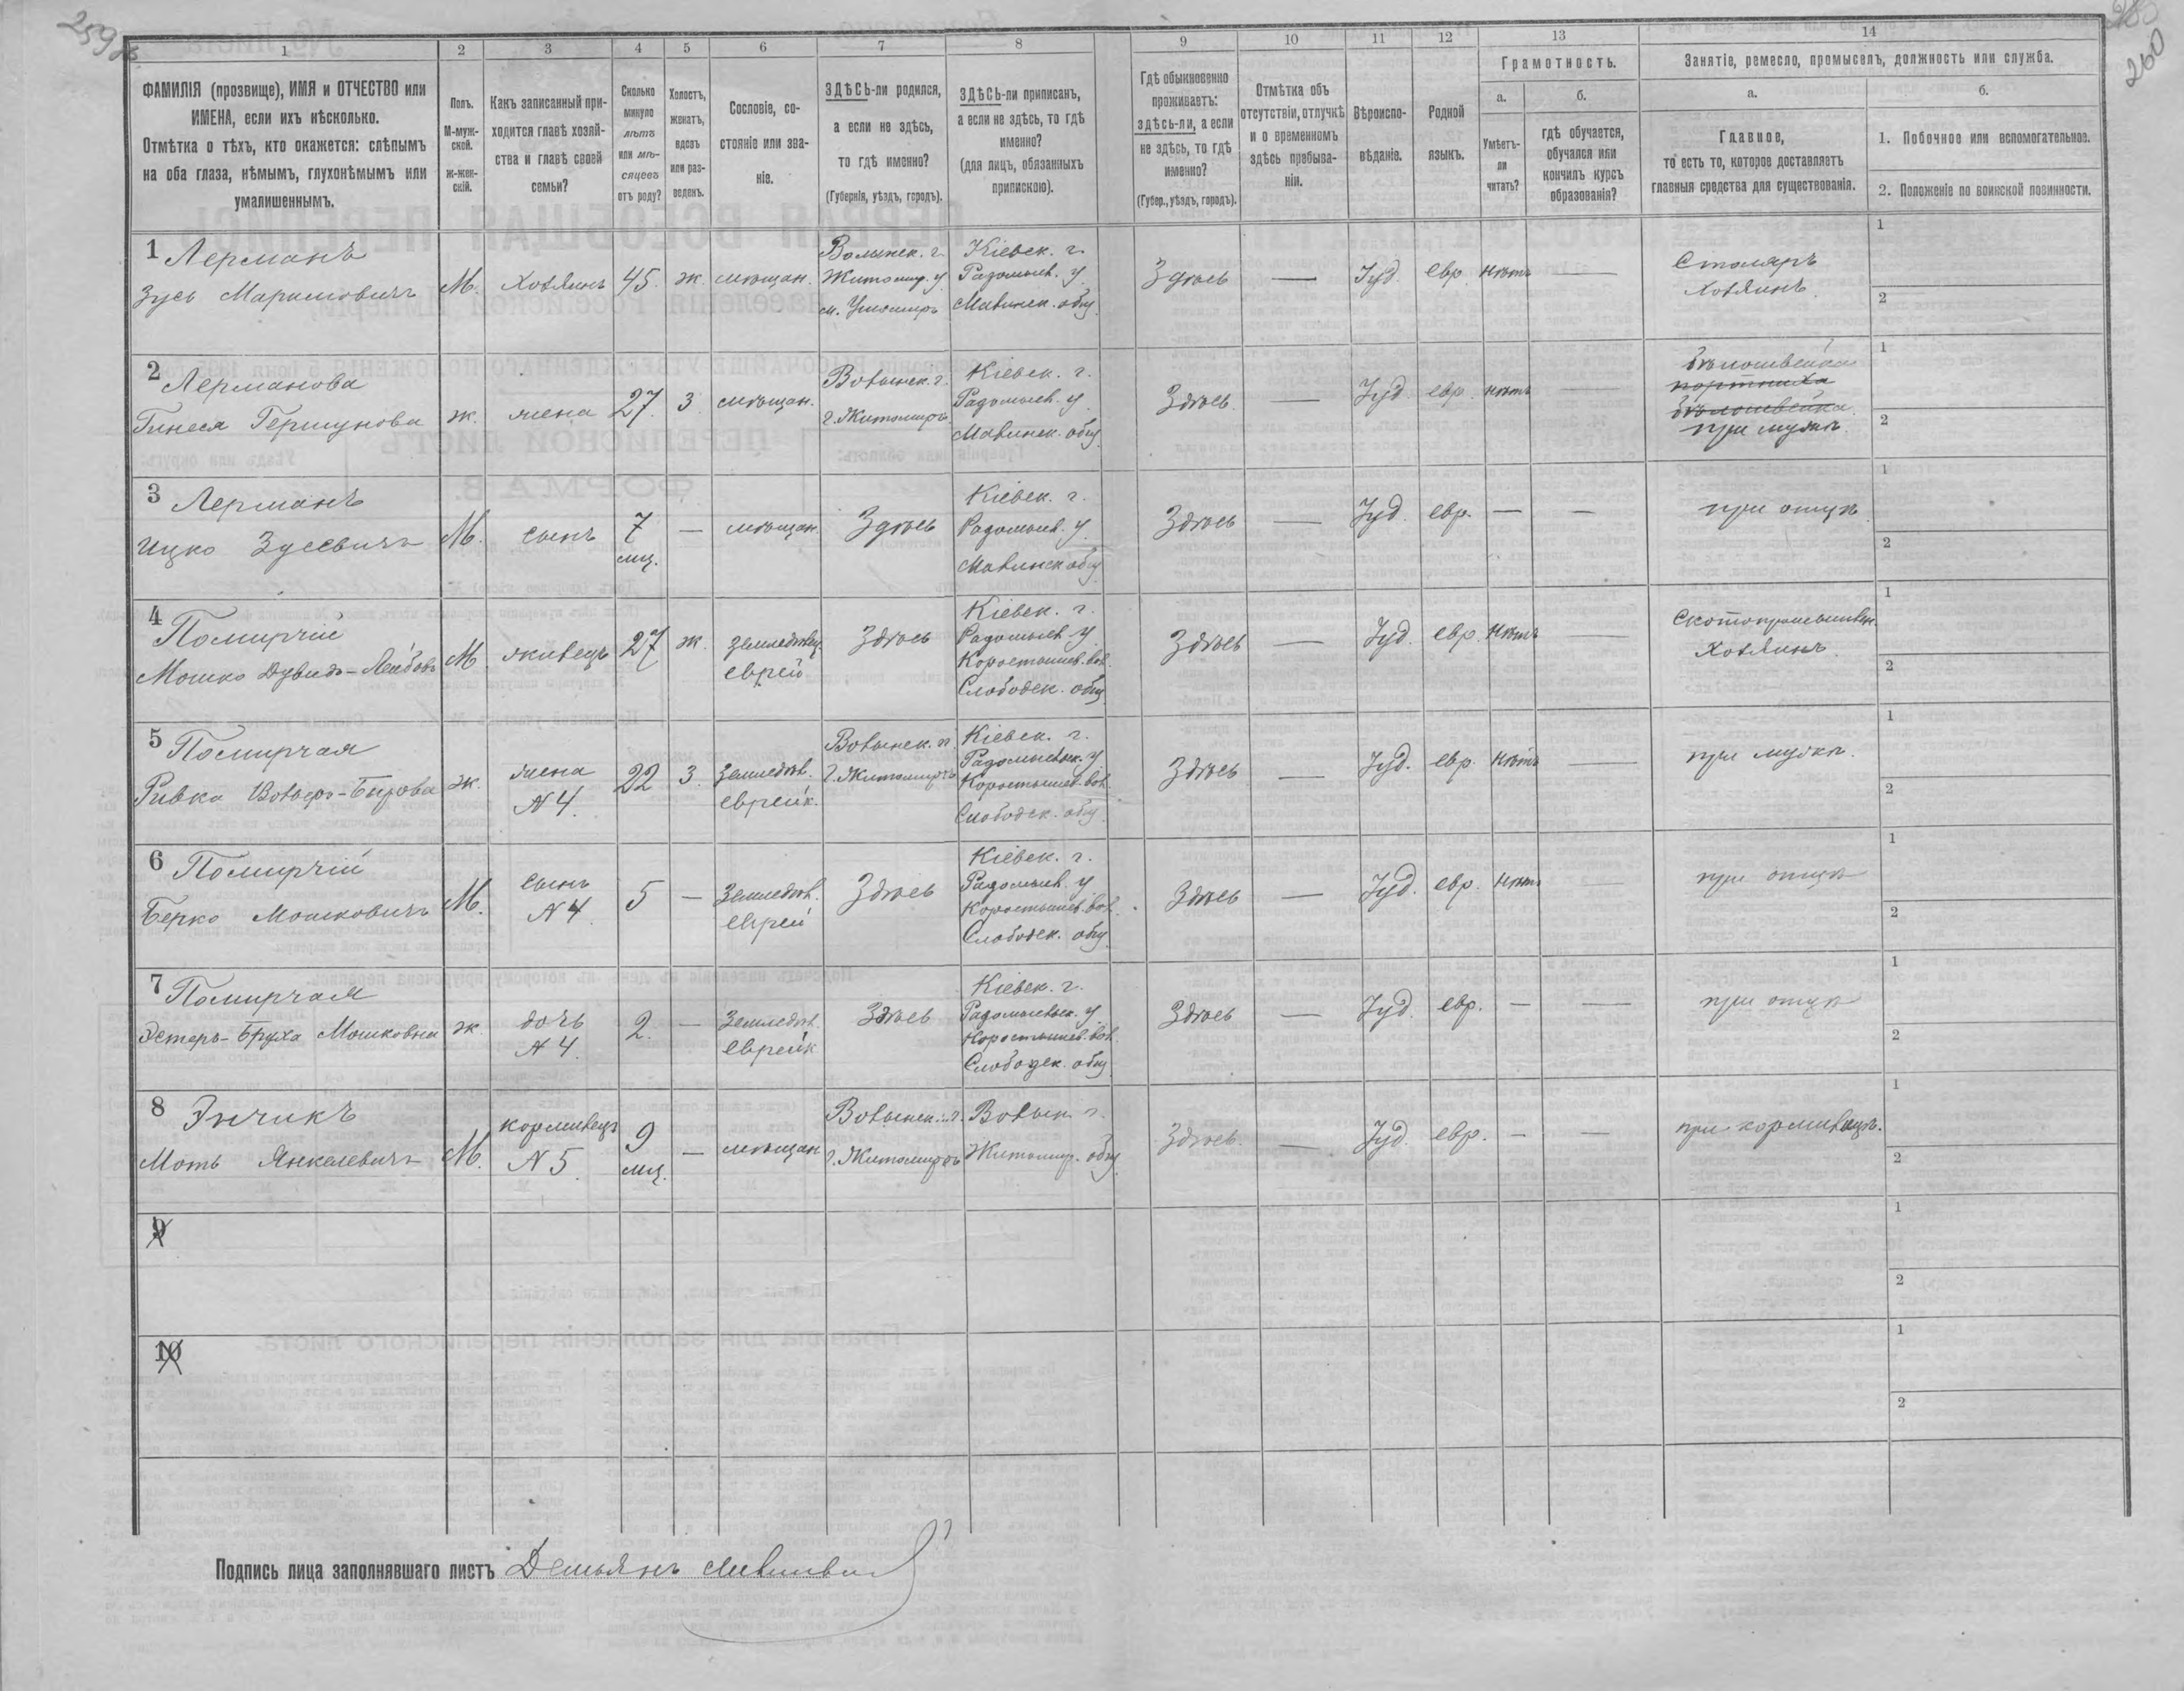 259 об
260
1 2 3 4 5 6 7 8 9 10 11 12 13 14
ФАМИЛІЯ (прозвище), ИМЯ и ОТЧЕСТВО или
ИМЕНА, если ихъ нѣсколько.
Отмѣтка о тѣхъ, кто окажется: слѣпымъ
на оба глаза, нѣмымъ, глухонѣмымъ или
умалишеннымъ.
Полъ.
М-муж-
ской.
Ж-жен-
скій.
Какъ записанный при-
ходится главѣ хозяй-
ства и главѣ своей
семьи?
Сколько
минуло
лѣтъ
или мѣ-
сяцевъ
отъ роду?
Холостъ,
женатъ,
вдовъ
или раз-
веденъ.
Сословіе, со-
стояніе или зва-
ніе.
ЗДѢСЬ-ли родился,
а если не здѣсь,
то гдѣ именно?
(Губернія, уѣздъ, городъ).
ЗДѢСЬ-ли приписанъ,
а если не здѣсь, то гдѣ
именно?
(для лицъ, обязанныхъ
припискою).
Гдѣ обыкновенно
проживаетъ:
здѣсь-ли, а если
не здѣсь, то гдѣ
именно?
(Губер., уѣздъ, городъ).
Отмѣтка объ
отсутствіи, отлучкѣ
и о временномъ
здѣсь пребыва-
ніи.
Вѣроиспо-
вѣданіе.
Родной
языкъ.
Грамотность.
а.
Умѣетъ-
ли
читать?
б.
гдѣ обучается,
обучался или
кончилъ курсъ
образованія?
Занятіе, ремесло, промыселъ, должность или служба.
а.
Главное,
то есть то, которое доставляетъ
главныя средства для существованія.
б.
1. Побочное или вспомогательное.
2. Положеніе по воинской повинности.
1 Лерманъ
Зусь
М.
Хозяинъ
45.
ж.
мѣщан.
Волынск. г.
Житомир. у.
м. Ушомиръ
Кіевск. г.
Радомысл. у.
Малинск. общ.
Здѣсь
—
Іуд.
евр.
нѣтъ
—
Столяръ
Хозяинъ
1
2
2 Лерманова
Гинеся Гершунова
ж.
жена
27.
З.
мѣщан.
Волынск. г.
г. Житомиръ
Кіевск. г.
Радомысл. у.
Малинск. общ.
Здѣсь.
—
Іуд.
евр.
нѣтъ
—
бѣлошвейка
портниха
бѣлошвейка
при мужѣ.
1
2
3 Лерманъ
Ицко Зусевичъ
М.
сынъ
7
мц.
—
мѣщан.
Здѣсь
Кіевск. г.
Радомысл. у.
Малинск общ.
Здѣсь
—
Іуд.
евр.
—
—
при отцѣ
1
2
4 Помирчій
Мошко Дувидъ-Лейбовъ
М.
жилецъ
27
ж.
земледѣлец.
еврей
Здѣсь
Кіевск. г.
Радомысл. у.
Коростышев. вол.
Слободск. общ.
Здѣсь
—
Іуд.
евр.
нѣтъ
Скотопромышлен.
Хозяинъ
1
2
5 Помирчая
Ривка Вольфъ-Берова
ж.
жена
N 4.
22
З.
Земледѣл.
еврейк.
Волынск. г.
г. Житомиръ
Кіевск. г.
Радомысльск. у.
Коростышев. вол.
Слободск. общ.
Здѣсь
—
Іуд.
евр.
нѣтъ
—
при мужѣ.
1
2
6 Помирчій
Берко Мошковичъ
М.
сынъ
N 4.
5
—
Земледѣл.
еврей
Здѣсь
Кіевск. г.
Радомысл. у.
Коростышев. вол.
Слободск. общ.
Здѣсь
—
Іуд.
евр.
нѣтъ
—
при отцѣ
1
2
7 Помирчая
Эстеръ-Бруха Мошковна
ж.
дочь
N 4.
2.
—
Земледѣл.
еврейк
Здѣсь
Кіевск. г.
Радомысльск. у.
Коростышев. вол.
Слободск. общ.
Здѣсь
—
Іуд.
евр.
—
—
при отцѣ
1
2
8 Энчикъ
Моть Янкелевичъ
М.
кормилецъ
N 5.
9
мц.
—
мѣщан
Волынск. г.
г. Житомиръ
Волын. г.
Житомир. общ.
Здѣсь.
—
Іуд.
евр.
—
—
при кормилицѣ.
1
2
9
1
2
10
1
2
Подпись лица заполнявшаго листъ Демьянъ